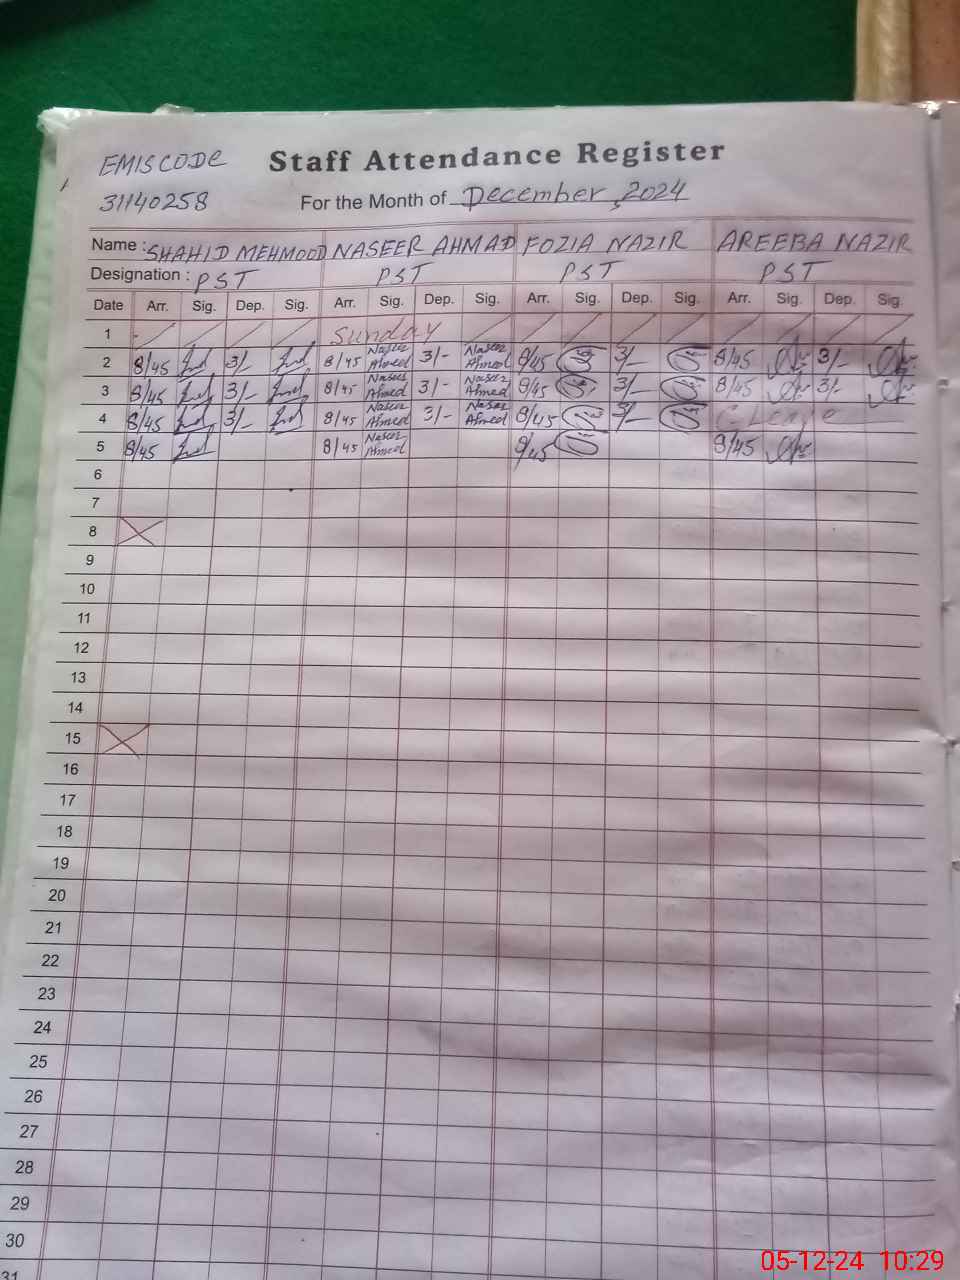 EMIS CODE Staff Attendance Register
31140258 For the Month of December, 2024
Name : SHAHID MEHMOOD NASEER AHMAD FOZIA NAZIR AREEBA NAZIR
Designation : PST PST PST PST
Date Arr. Sig. Dep. Sig. Arr. Sig. Dep. Sig. Arr. Sig. Dep. Sig. Arr. Sig. Dep. Sig.
1 Sunday
2 8/45 3/- 8/45 Naseer Ahmed 3/- Naseer Ahmed 8/45 3/- 8/45 3/-
3 8/45 3/- 8/45 Naseer Ahmed 3/- Naseer Ahmed 8/45 3/- 8/45 3/-
4 8/45 3/- 8/45 Naseer Ahmed 3/- Naseer Ahmed 8/45 3/-
5 8/45 8/45 Naseer Ahmed 8/45 8/45
6
7
8
9
10
11
12
13
14
15
16
17
18
19
20
21
22
23
24
25
26
27
28
29
30
31
05-12-24 10:29